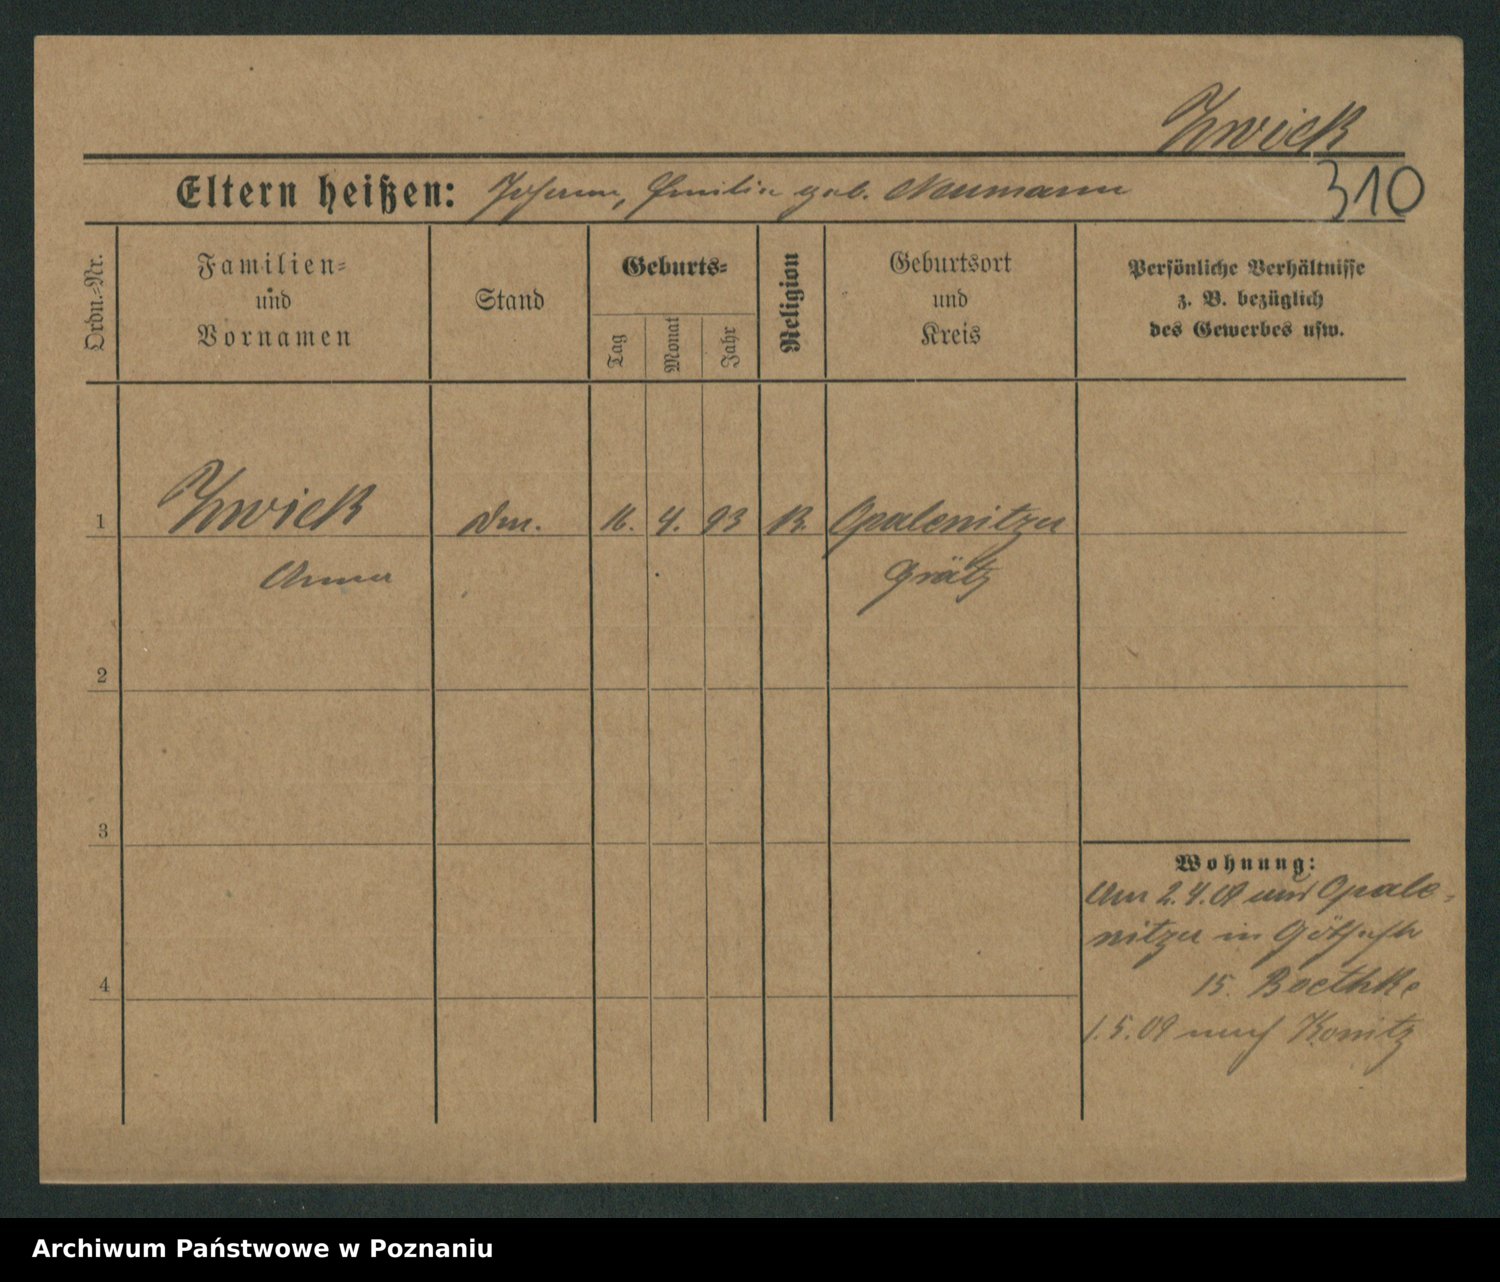 Zwick
310
Eltern heißen: Johann, Emilie geb. Neumann
Ordn.-Nr.
Familien-
und
Vornamen
Stand
Geburts-
Tag
Monat
Jahr
Religion
Geburtsort
und
Kreis
Persönliche Verhältnisse
z. B. bezüglich
des Gewerbes usw.
1 Zwick 16. 4. 93 K. Opalenitza
Anna Grätz
2
3
Wohnung:
Am 2.4.09 aus Opale-
nitza in
15. Boethke
4
1.5.09 nach Konitz
Archiwum Państwowe w Poznaniu